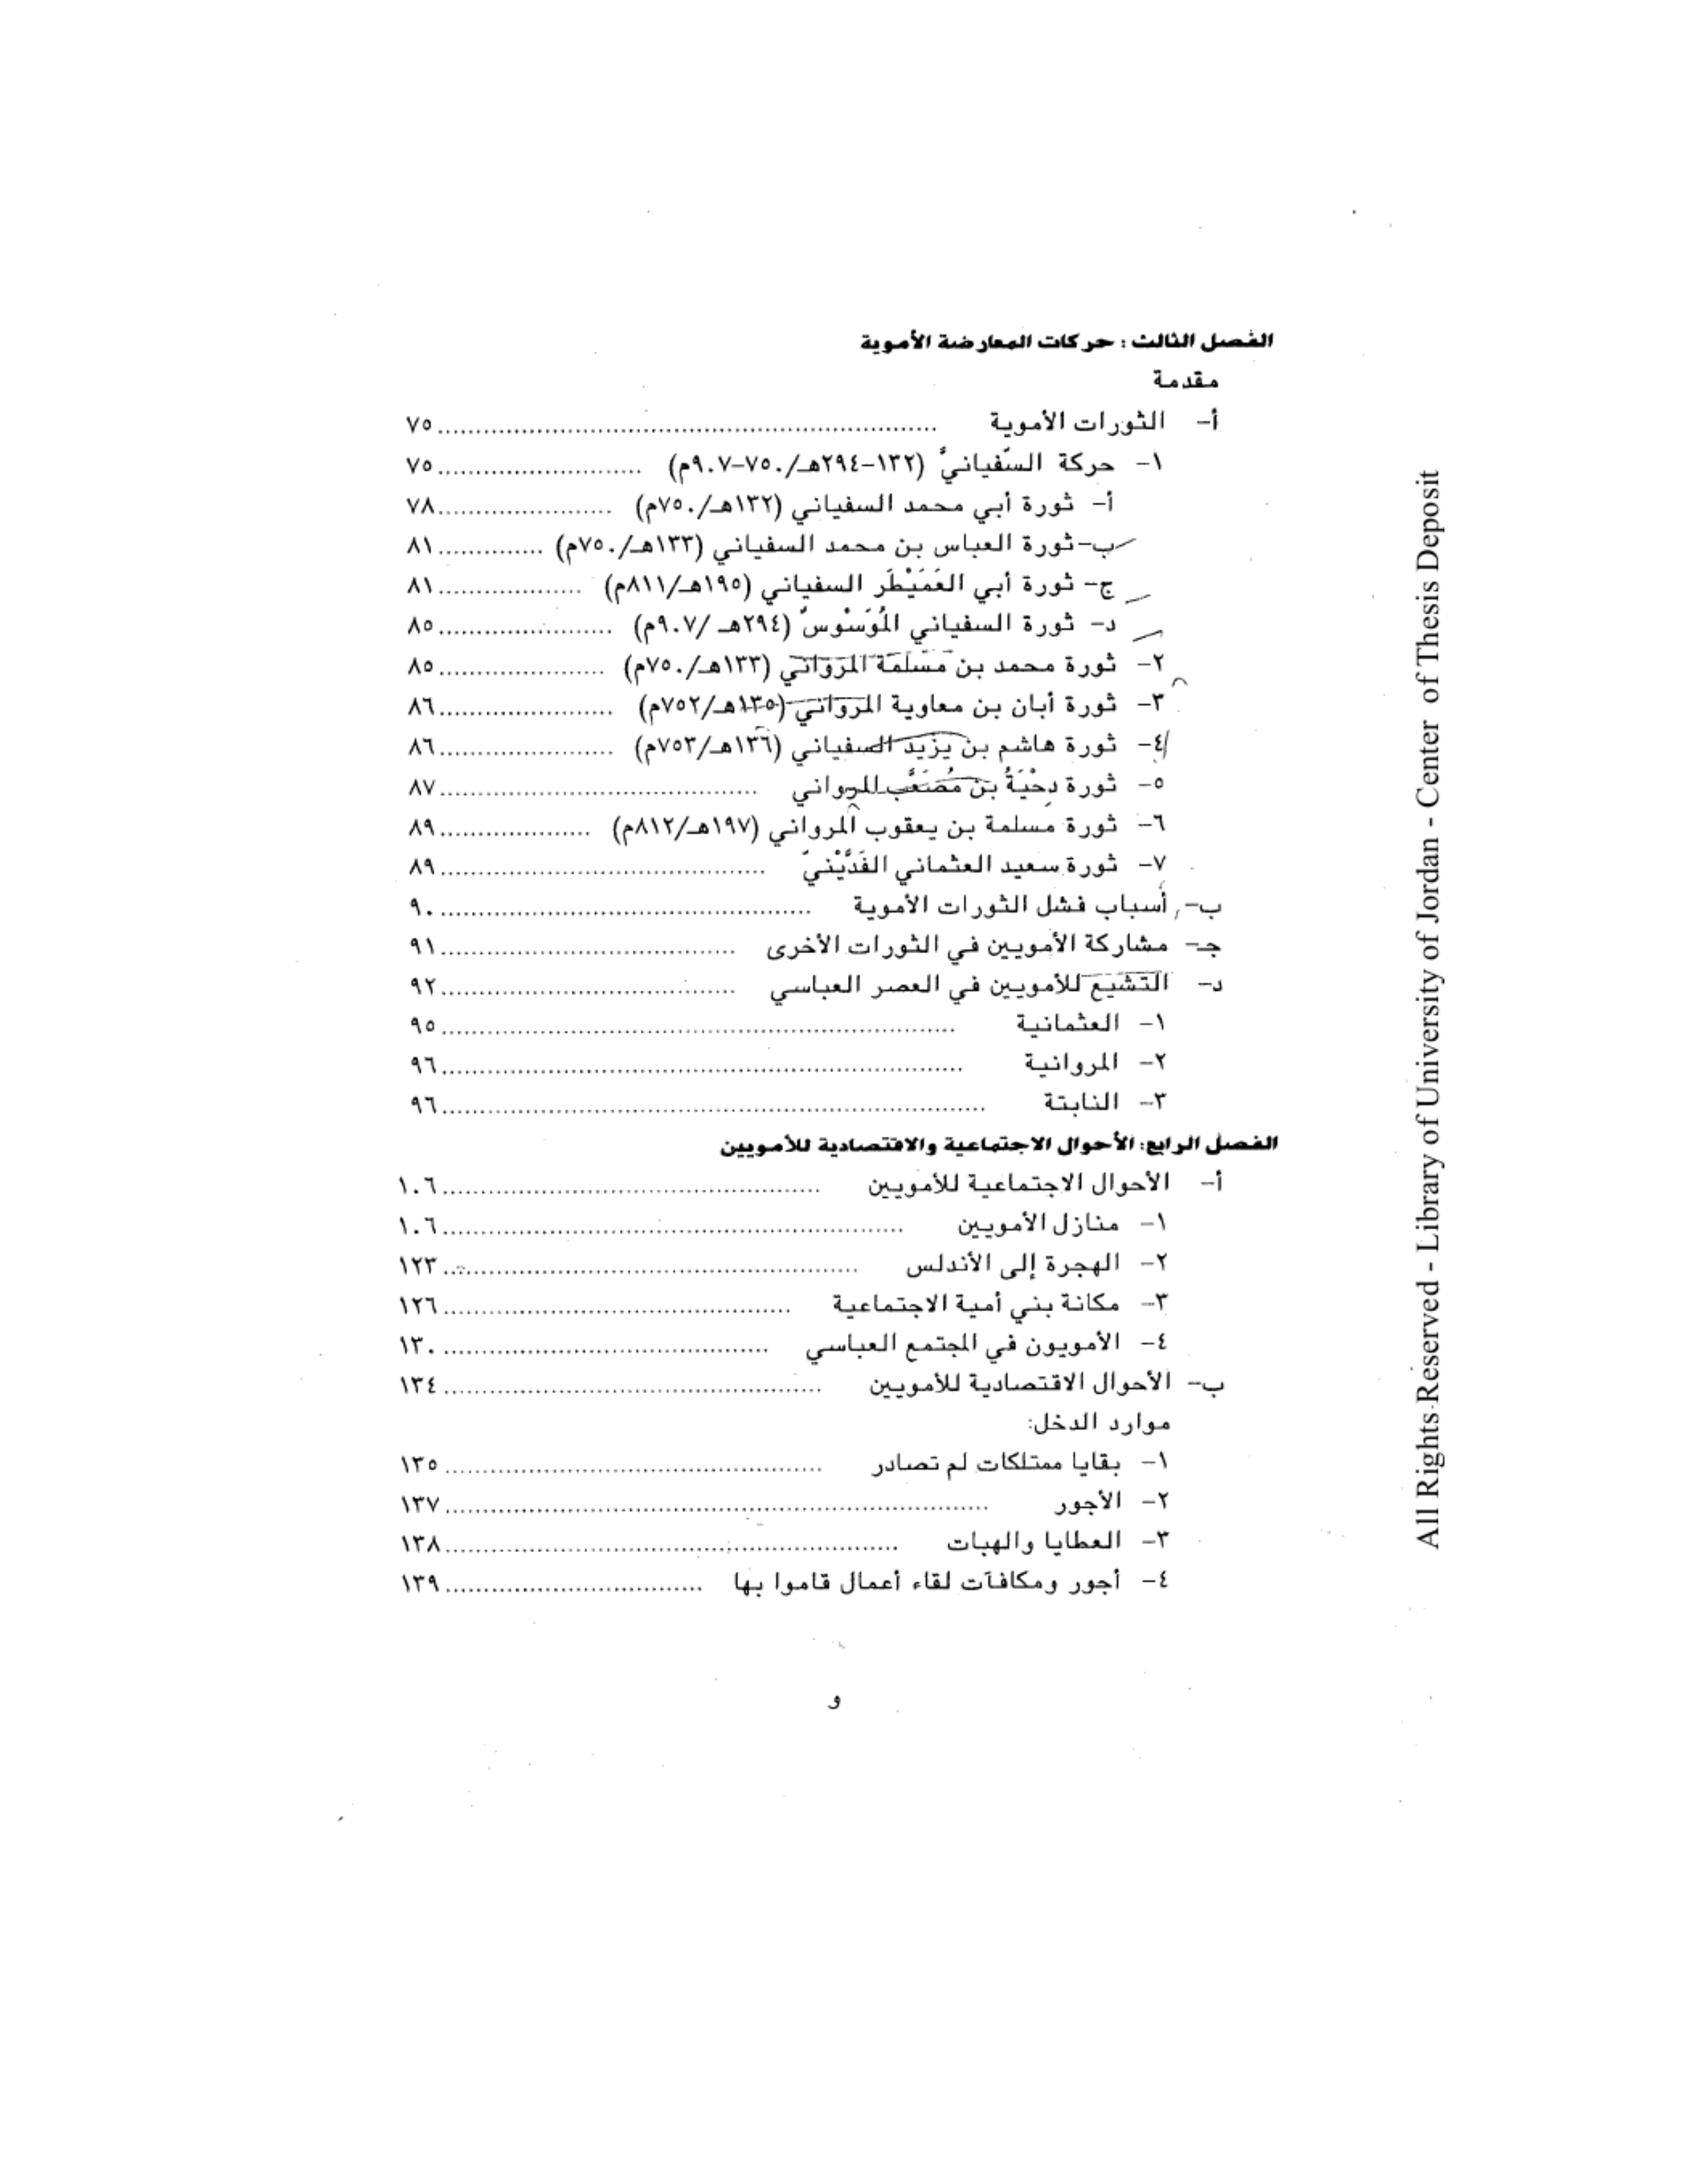 الفصل الثالث : حركات المعارضة الأموية
مقدمة
أ- الثورات الأموية ........................ ٧٥
١- حركة السّفيانيّ (١٣٢-٢٩٤هـ/٧٥٠-٩٠٧م) ........................ ٧٥
أ- ثورة أبي محمد السفياني (١٣٢هـ/٧٥٠م) ........................ ٧٨
ب-ثورة العباس بن محمد السفياني (١٣٣هـ/٧٥٠م) .............. ٨١
ج- ثورة أبي العَمَيْطَر السفياني (١٩٥هـ/٨١١م) ................... ٨١
د- ثورة السفياني المُوَسْوسّ (٢٩٤هـ /٩٠٧م) ........................ ٨٥
٢- ثورة محمد بن مَسْلَمَة المرواني (١٣٣هـ/٧٥٠م) ...................... ٨٥
٣- ثورة أبان بن معاوية المرواني (١٣٥هـ/٧٥٢م) ....................... ٨٦
٤- ثورة هاشم بن يزيد السفياني (١٣٦هـ/٧٥٣م) ....................... ٨٦
٥- ثورة دِحْيَةُ بن مُصَعَّب المرواني ........................ ٨٧
٦- ثورة مسلمة بن يعقوب المرواني (١٩٧هـ/٨١٢م) .................... ٨٩
٧- ثورة سعيد العثماني الفَدَّيْنيّ ........................ ٨٩
ب- أسباب فشل الثورات الأموية ........................ ٩٠
جـ- مشاركة الأمويين في الثورات الأخرى ........................ ٩١
د- التشيع للأمويين في العصر العباسي ........................ ٩٢
١- العثمانية ........................ ٩٥
٢- المروانية ........................ ٩٦
٣- النابتة ........................ ٩٦
الفصل الرابع: الأحوال الاجتماعية والاقتصادية للأمويين
أ- الأحوال الاجتماعية للأمويين ........................ ١٠٦
١- منازل الأمويين ........................ ١٠٦
٢- الهجرة إلى الأندلس ........................ ١٢٣
٣- مكانة بني أمية الاجتماعية ........................ ١٢٦
٤- الأمويون في المجتمع العباسي ........................ ١٣٠
ب- الأحوال الاقتصادية للأمويين ........................ ١٣٤
موارد الدخل:
١- بقايا ممتلكات لم تصادر ........................ ١٣٥
٢- الأجور ........................ ١٣٧
٣- العطايا والهبات ........................ ١٣٨
٤- أجور ومكافآت لقاء أعمال قاموا بها ........................ ١٣٩
و
All Rights Reserved - Library of University of Jordan - Center of Thesis Deposit